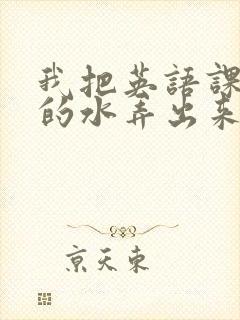 我把英語課
的水弄出來
京天東